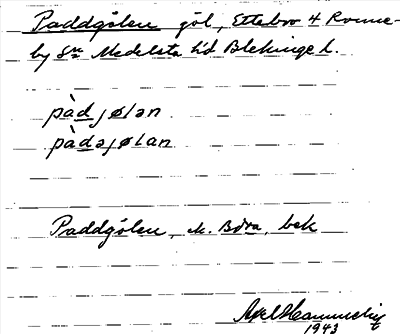 Paddgölen göl, Ettebro 4 Ronne-
by Sn Medelsta hd Blekinge l.
pàdjølən
pàdəjølan
Paddgölen, M. Böra, bek
Axel Hammelig
1943